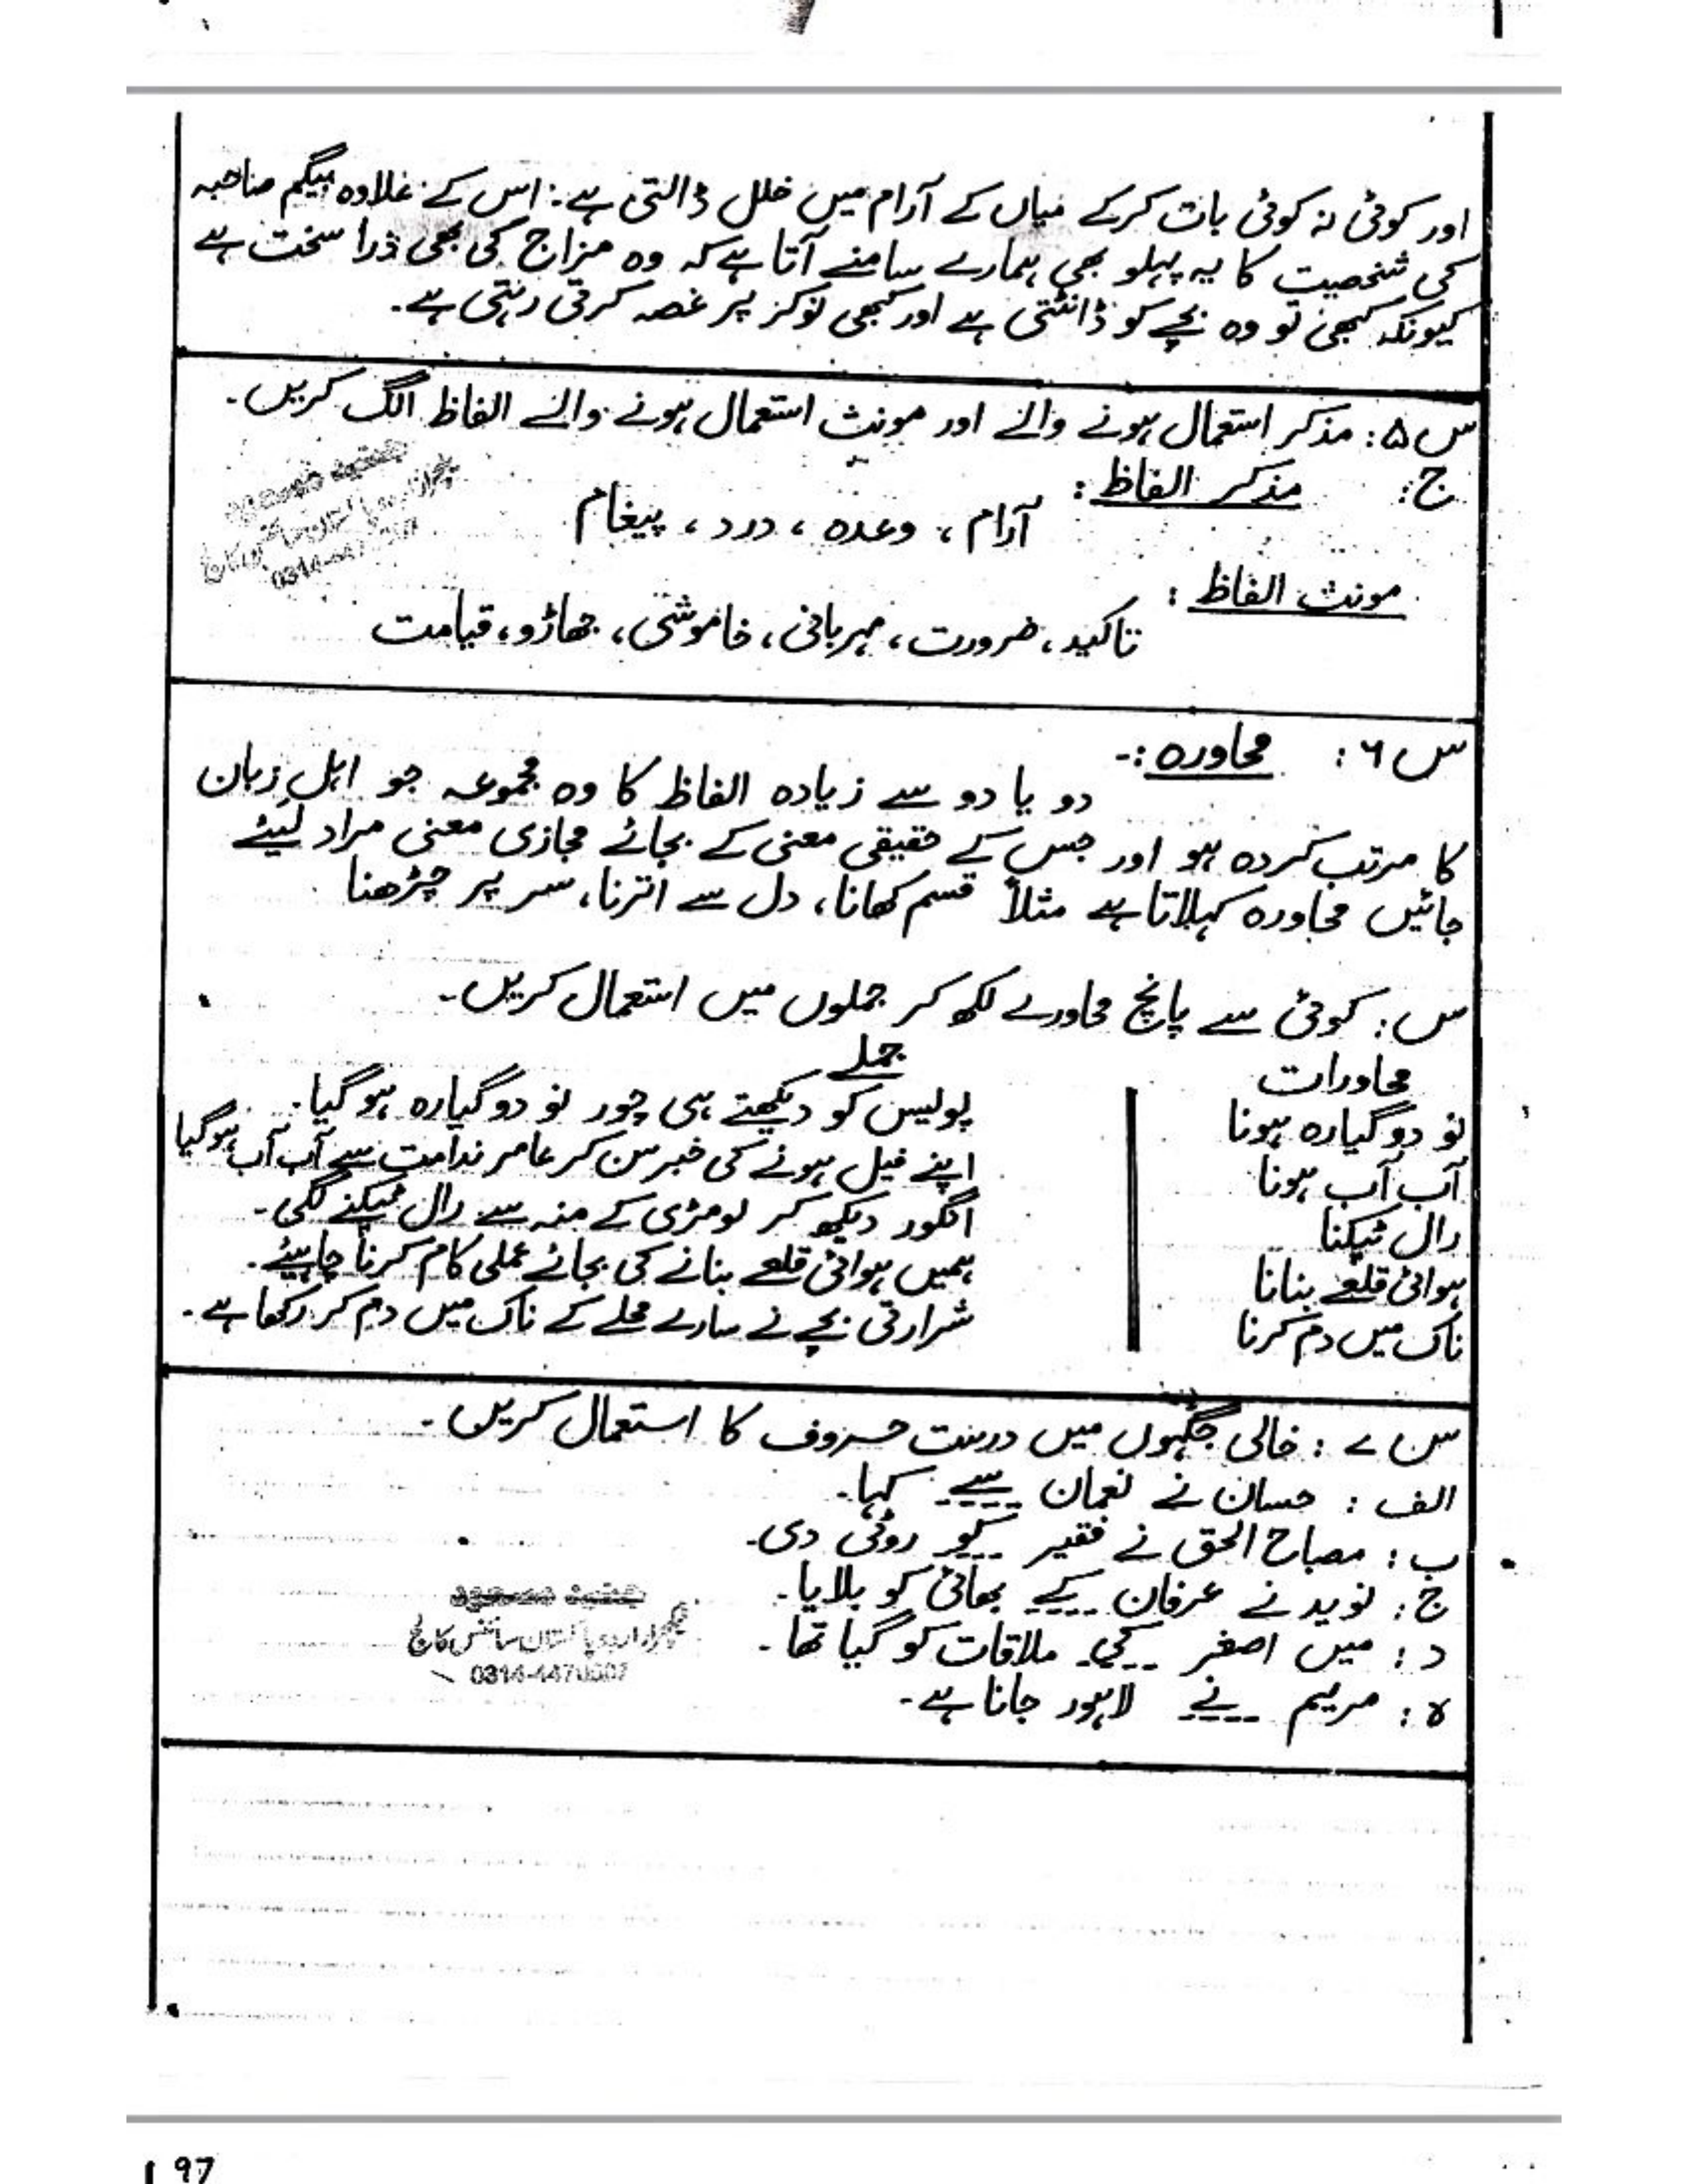 اور کوئی نہ کوئی بات کرکے میاں کے آرام میں خلل ڈالتی ہے۔ اس کے علاوہ بیگم صاحبہ
کی شخصیت کا یہ پہلو بھی ہمارے سامنے آتا ہے کہ وہ مزاج کی بھی ذرا سخت ہے
کیونکہ کبھی تو وہ بچے کو ڈانٹتی ہے اور کبھی نوکر پر غصہ کرتی رہتی ہے۔
س ۵: مذکر استعمال ہونے والے اور مونث استعمال ہونے والے الفاظ الگ کریں۔
ج: مذکر الفاظ:
آرام ، وعدہ ، درد ، پیغام
مونث الفاظ:
تاکید، ضرورت، مہربانی، خاموشی، جھاڑو، قیامت
س ۶: محاورہ:-
دو یا دو سے زیادہ الفاظ کا وہ مجموعہ جو اہلِ زبان
کا مرتب کردہ ہو اور جس کے حقیقی معنی کے بجائے مجازی معنی مراد لیئے
جائیں محاورہ کہلاتا ہے مثلاً قسم کھانا، دل سے اترنا، سر پر چڑھنا
س: کوئی سے پانچ محاورے لکھ کر جملوں میں استعمال کریں۔
محاورات جملے
نو دو گیارہ ہونا پولیس کو دیکھتے ہی چور نو دو گیارہ ہو گیا۔
آب آب ہونا اپنے فیل ہونے کی خبر سن کر عامر ندامت سے آب آب ہو گیا
رال ٹپکنا انگور دیکھ کر لومڑی کے منہ سے رال ٹپکنے لگی۔
ہوائی قلعے بنانا ہمیں ہوائی قلعے بنانے کی بجائے عملی کام کرنا چاہیئے۔
ناک میں دم کرنا شرارتی بچے نے سارے محلے کے ناک میں دم کر رکھا ہے۔
س ۷: خالی جگہوں میں درست حروف کا استعمال کریں۔
الف: حسان نے نعمان سے کہا۔
ب: مصباح الحق نے فقیر کو روٹی دی۔
ج: نوید نے عرفان کے بھائی کو بلایا۔
د: میں اصغر کی ملاقات کو گیا تھا۔
ہ: مریم نے لاہور جانا ہے۔
97